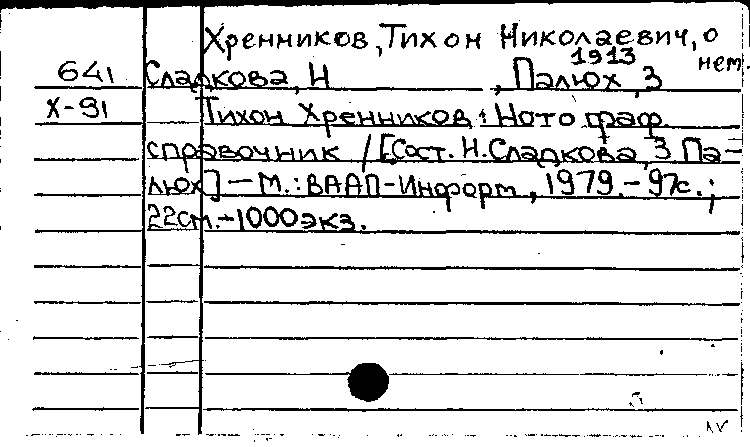 Хренников, Тихон Николаевич, о
1913 нем.
641 Сладкова, Н , Палюх, З
Х-91 Тихон Хренников : Нотограф.
справочник / [Сост. Н. Сладкова, З Па-
люх] — М.: ВААП-Информ, 1979. - 97с.;
22см. - 1000 экз.